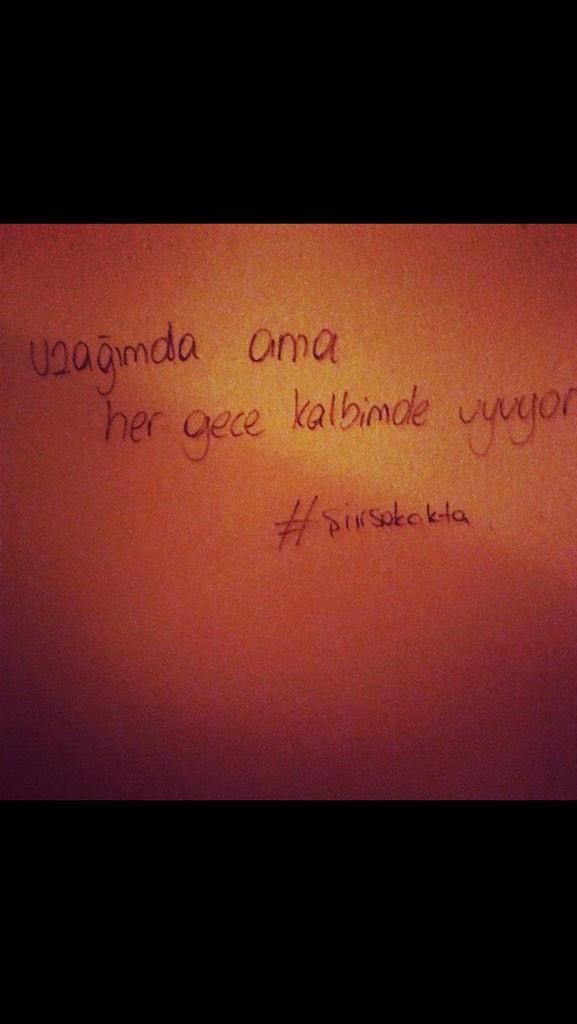 uzağımda ama
her gece kalbimde uyuyor
#şiirsokakta